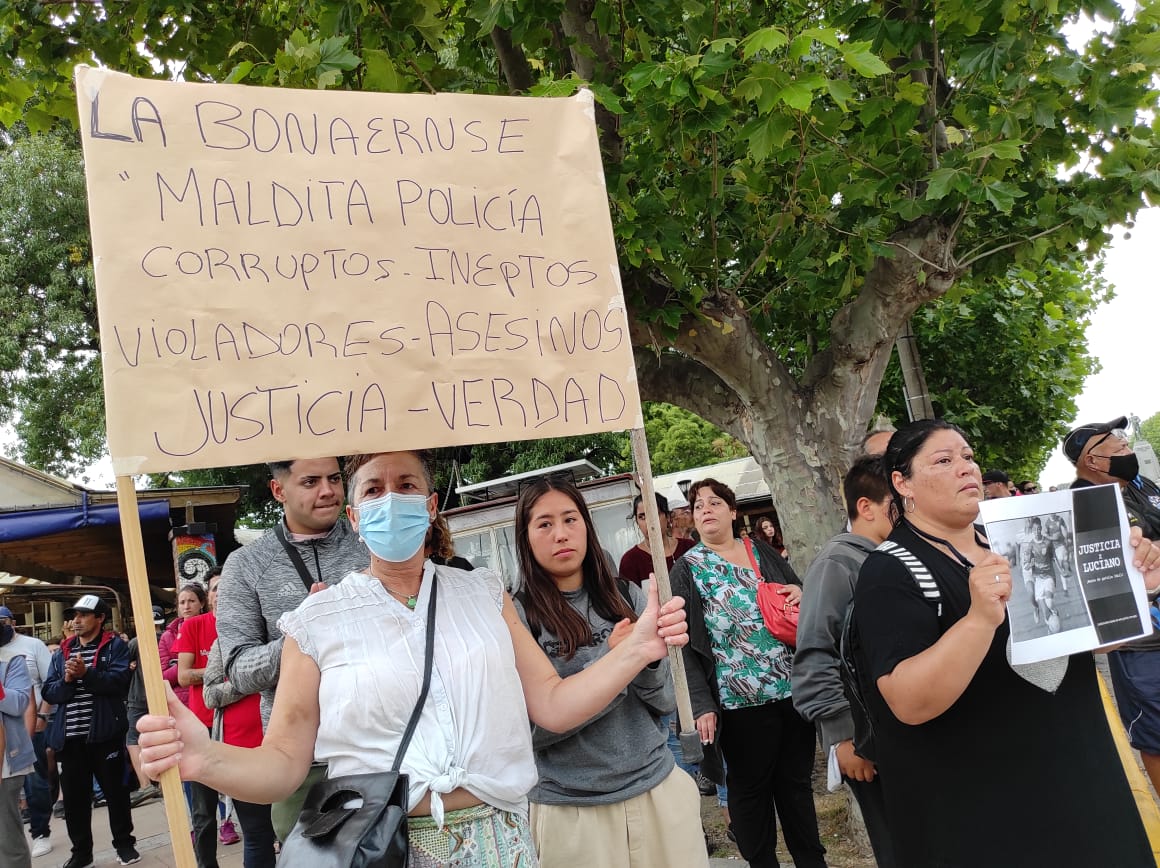 LA BONAERNSE
"MALDITA POLICÍA
CORRUPTOS-INEPTOS
VIOLADORES-ASESINOS
JUSTICIA-VERDAD
JUSTICIA
x
LUCIANO